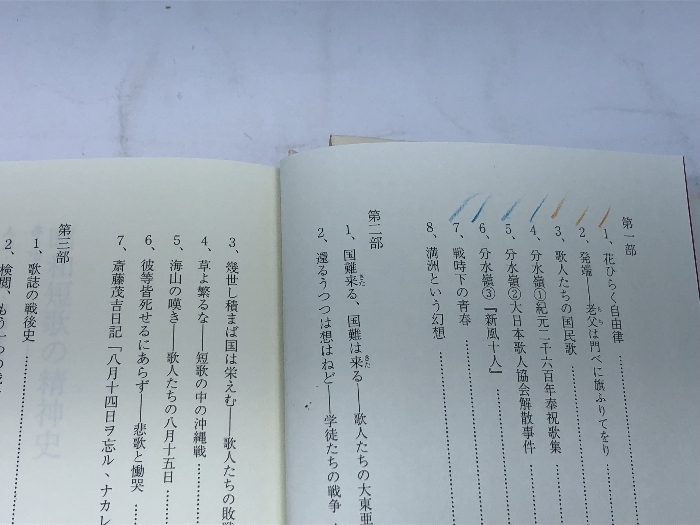 第一部
1、花ひらく自由律
2、発端——老父は門べに旗ふりてをり
3、歌人たちの国民歌
4、分水嶺①紀元二千六百年奉祝歌集
5、分水嶺②大日本歌人協会解散事件
6、分水嶺③『新風十人』
7、戦時下の青春
8、満洲という幻想
第二部
1、国難来る、国難は来る——歌人たちの大東亜
2、還るうつつは想はねど——学徒たちの戦争
3、幾世し積まば国は栄えむ——歌人たちの敗戦
4、草よ繁るな——短歌の中の沖縄戦
5、海山の嘆き——歌人たちの八月十五日
6、彼等皆死せるにあらず——悲歌と慟哭
7、斎藤茂吉日記「八月十四日ヲ忘ル、ナカレ
第三部
1、歌誌の戦後史
2、検閲、もう一つの戦
短歌の精神史